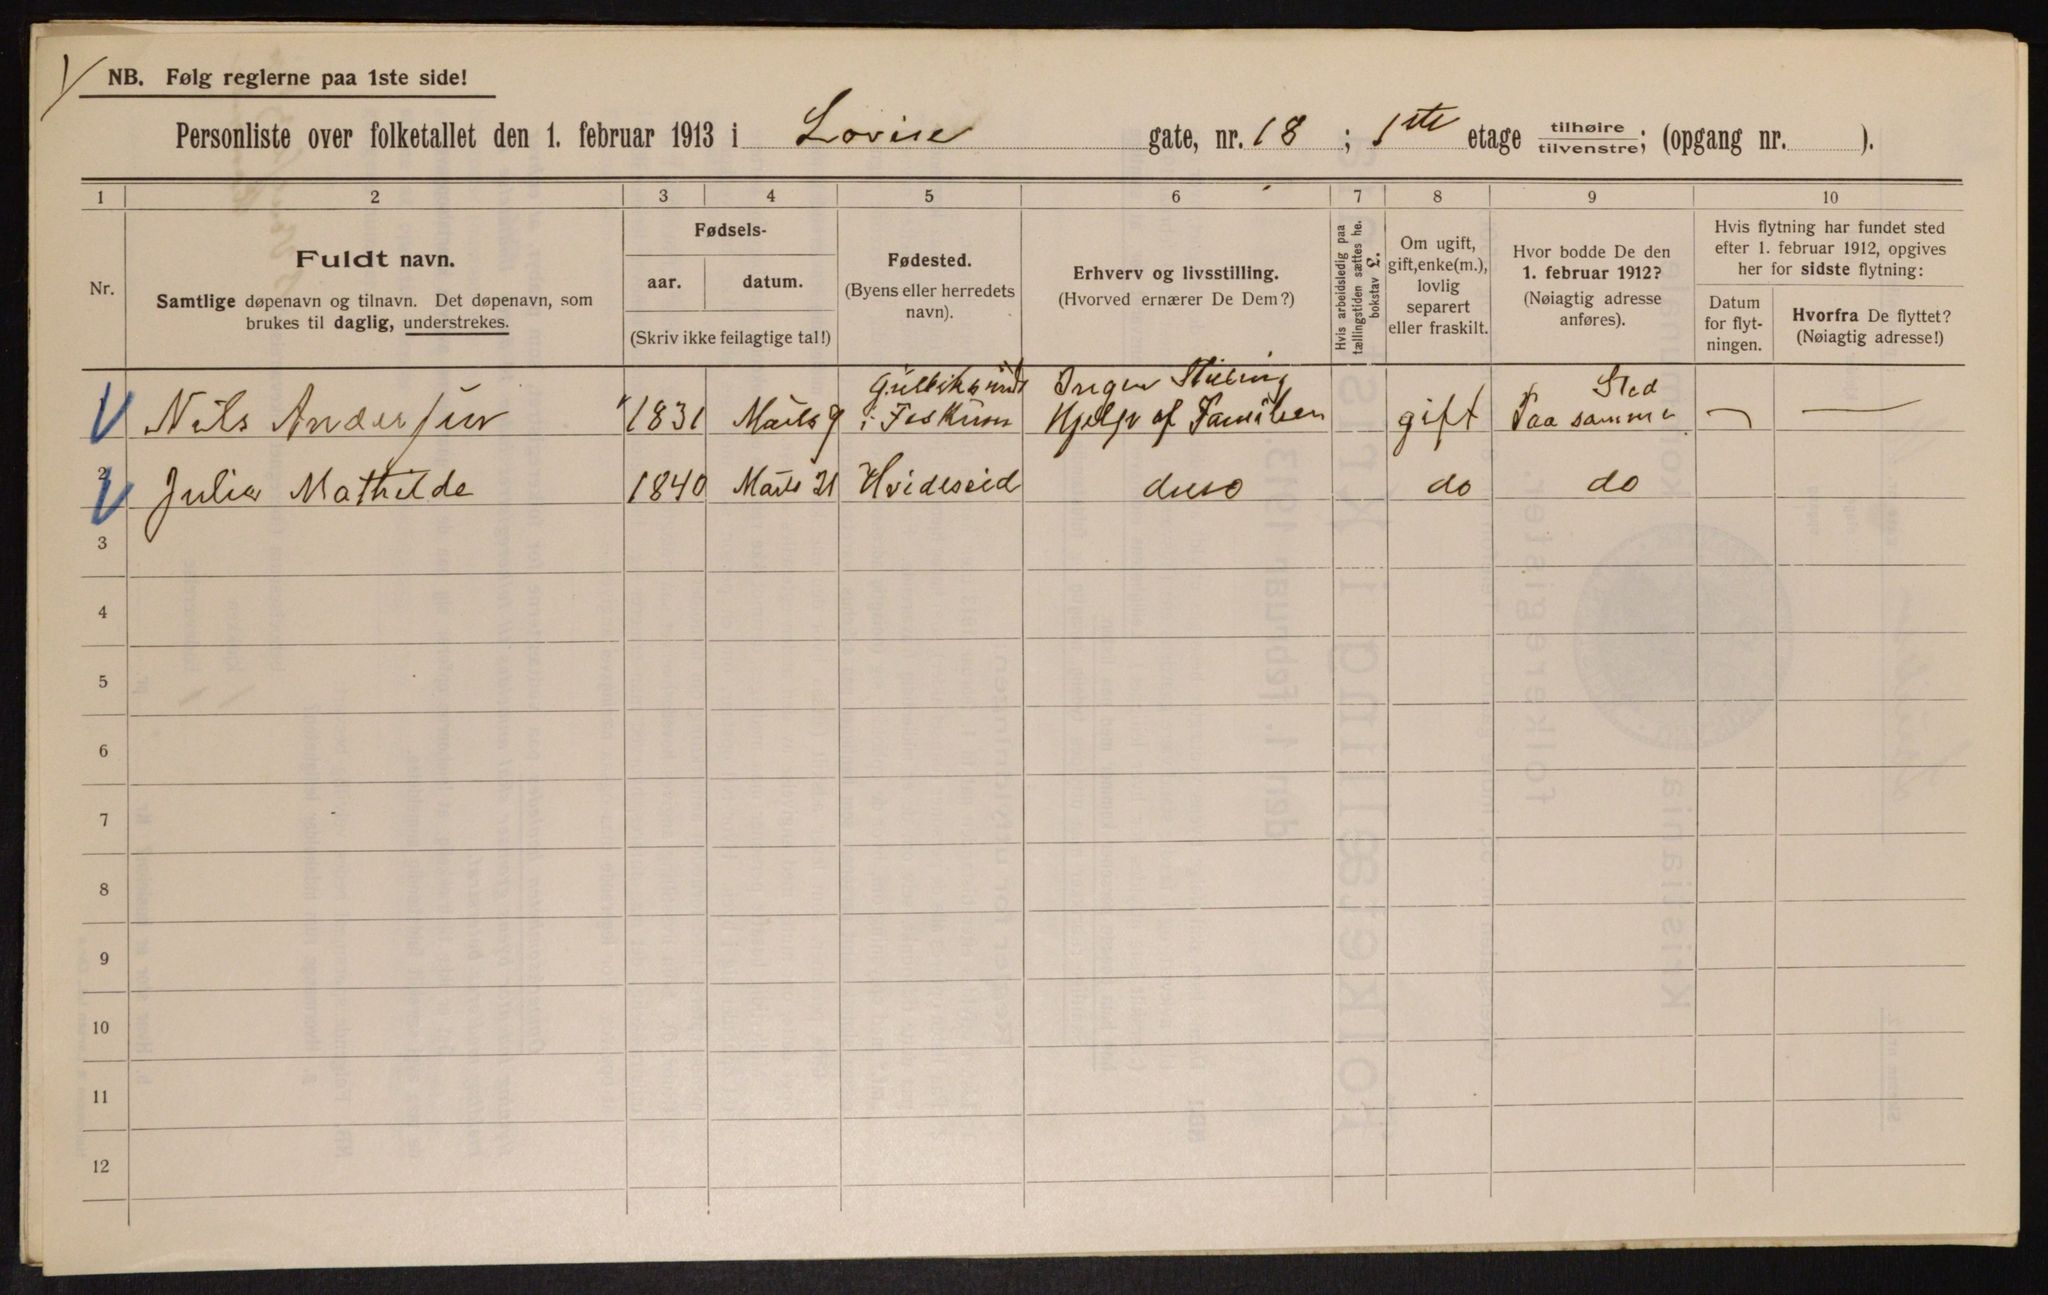 NB. Følg reglerne paa 1ste side!
Personliste over folketallet den 1. februar 1913 i Lovise gate, nr. 18 ; 1ste etage tilhøire tilvenstre; (opgang nr. ).
1 2 3 4 5 6 7 8 9 10
Nr.
Fuldt navn.
Samtlige døpenavn og tilnavn. Det døpenavn, som
brukes til daglig, understrekes.
Fødsels-
aar. datum.
(Skriv ikke feilagtige tal!)
Fødested.
(Byens eller herredets
navn).
Erhverv og livsstilling.
(Hvorved ernærer De Dem?)
Hvis arbeidsledig paa
tællingstiden sættes he.
bokstav L.
Om ugift,
gift, enke(m.),
lovlig
separert
eller fraskilt.
Hvor bodde De den
1. februar 1912?
(Nøiagtig adresse
anføres).
Hvis flytning har fundet sted
efter 1. februar 1912, opgives
her for sidste flytning:
Datum
for flyt-
ningen.
Hvorfra De flyttet?
(Nøiagtig adresse!)
Ingen Stilling Sted
Nils Andersen 1831 Marts 9 i Feskum Hjelp af Familien gift Paa samme — —
2 Julia Mathilde 1840 Marts 21 Hvideseid do do
3
4
5
6
7
8
9
10
11
12